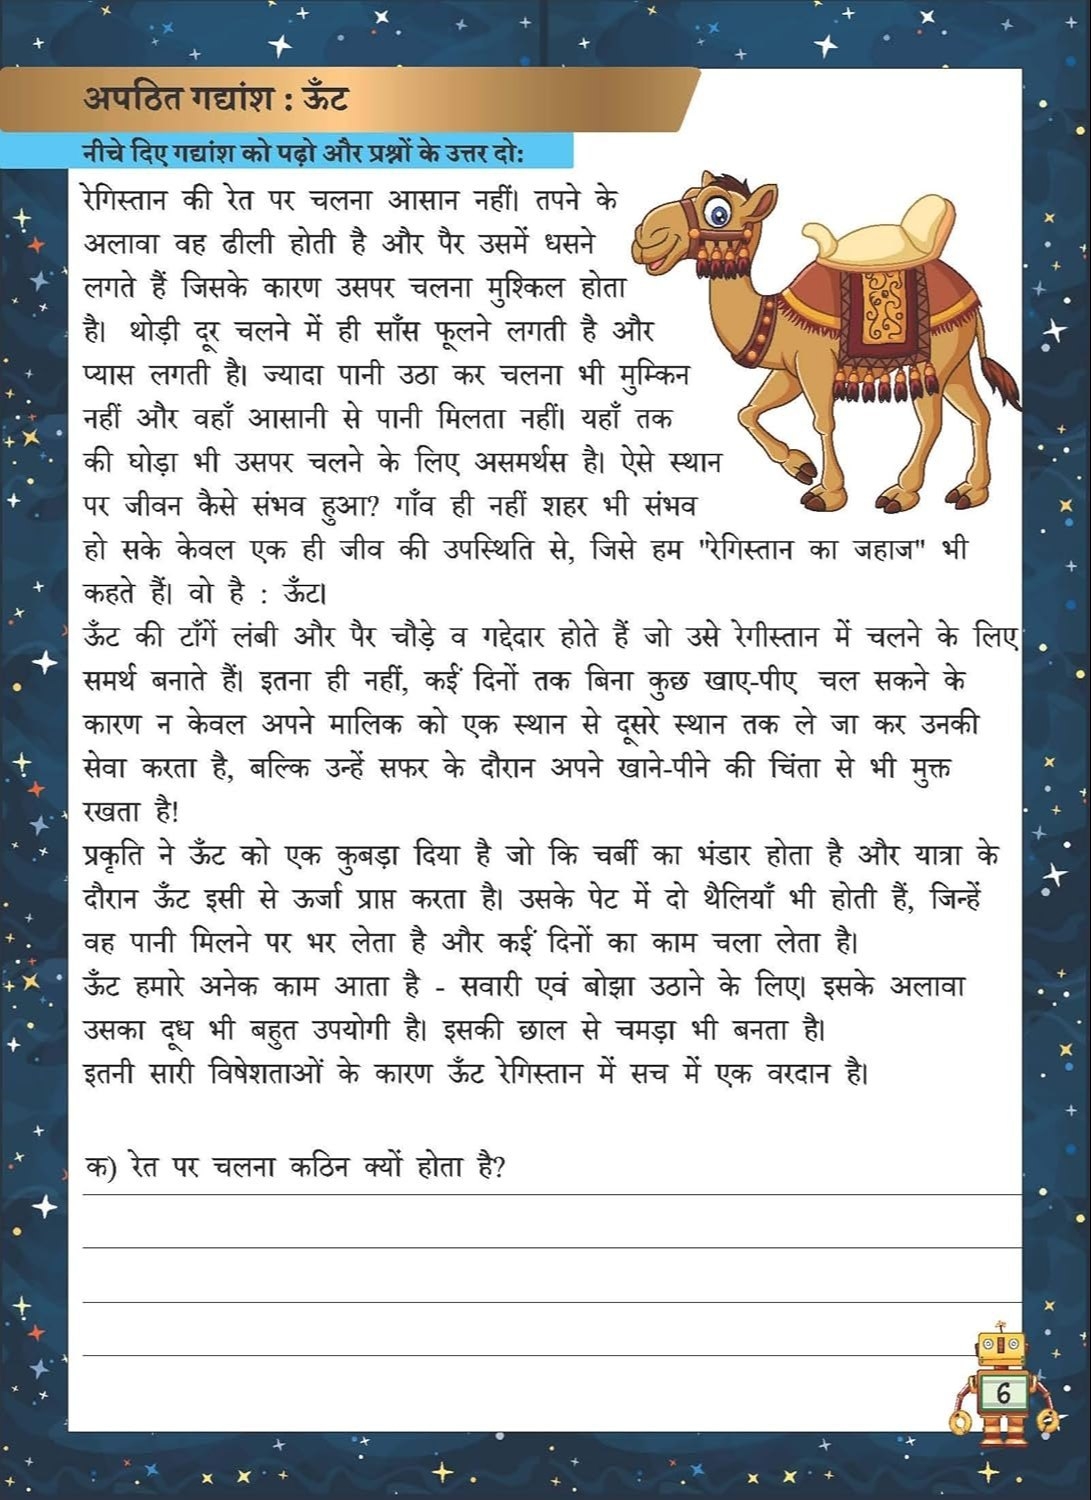 अपठित गद्यांश : ऊँट
नीचे दिए गद्यांश को पढ़ो और प्रश्नों के उत्तर दो:
रेगिस्तान की रेत पर चलना आसान नहीं। तपने के
अलावा वह ढीली होती है और पैर उसमें धसने
लगते हैं जिसके कारण उसपर चलना मुश्किल होता
है। थोड़ी दूर चलने में ही साँस फूलने लगती है और
प्यास लगती है। ज्यादा पानी उठा कर चलना भी मुम्किन
नहीं और वहाँ आसानी से पानी मिलता नहीं। यहाँ तक
की घोड़ा भी उसपर चलने के लिए असमर्थस है। ऐसे स्थान
पर जीवन कैसे संभव हुआ? गाँव ही नहीं शहर भी संभव
हो सके केवल एक ही जीव की उपस्थिति से, जिसे हम "रेगिस्तान का जहाज" भी
कहते हैं। वो है : ऊँट।
ऊँट की टाँगें लंबी और पैर चौड़े व गद्देदार होते हैं जो उसे रेगीस्तान में चलने के लिए
समर्थ बनाते हैं। इतना ही नहीं, कईं दिनों तक बिना कुछ खाए-पीए चल सकने के
कारण न केवल अपने मालिक को एक स्थान से दूसरे स्थान तक ले जा कर उनकी
सेवा करता है, बल्कि उन्हें सफर के दौरान अपने खाने-पीने की चिंता से भी मुक्त
रखता है!
प्रकृति ने ऊँट को एक कुबड़ा दिया है जो कि चर्बी का भंडार होता है और यात्रा के
दौरान ऊँट इसी से ऊर्जा प्राप्त करता है। उसके पेट में दो थैलियाँ भी होती हैं, जिन्हें
वह पानी मिलने पर भर लेता है और कईं दिनों का काम चला लेता है।
ऊँट हमारे अनेक काम आता है - सवारी एवं बोझा उठाने के लिए। इसके अलावा
उसका दूध भी बहुत उपयोगी है। इसकी छाल से चमड़ा भी बनता है।
इतनी सारी विषेशताओं के कारण ऊँट रेगिस्तान में सच में एक वरदान है।
क) रेत पर चलना कठिन क्यों होता है?
6